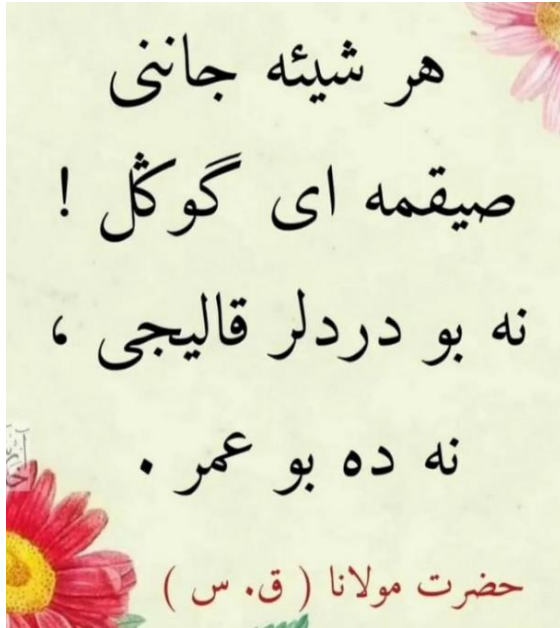 هر شيئه جاننی
صيقمه ای گوڭل !
نه بو دردلر قاليجی ،
نه ده بو عمر .
حضرت مولانا ( ق. س )